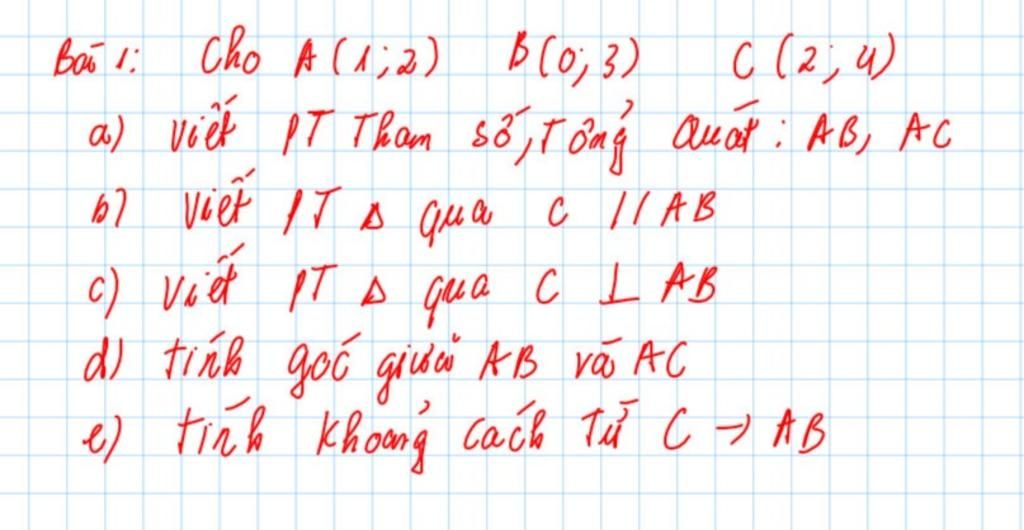 Bài 1: Cho A(1;2) B(0;3) C(2;4)
a) Viết PT Tham số, Tổng Quát: AB, AC
b) Viết PT Δ qua C // AB
c) Viết PT Δ qua C ⊥ AB
d) tính góc giữa AB và AC
e) tính Khoảng cách Từ C → AB